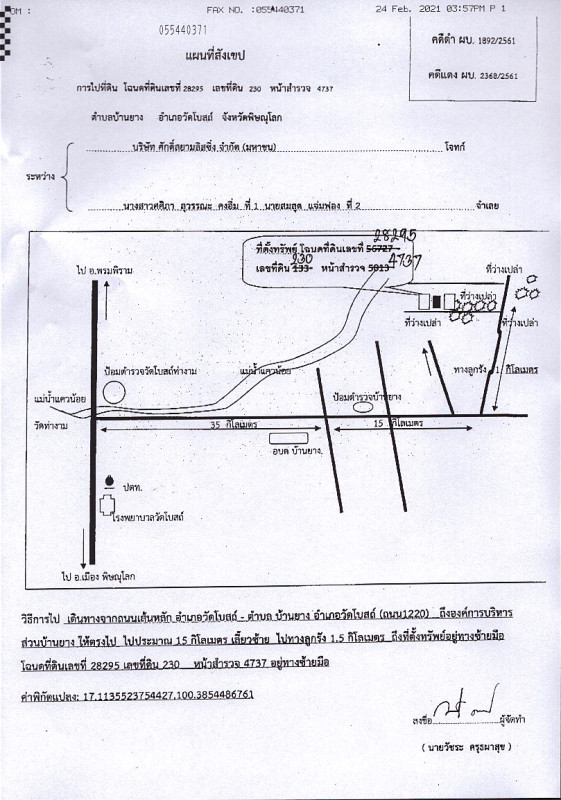 OM : FAX NO. :055440371 24 Feb. 2021 03:57PM P 1
055440371
คดีดำ ผบ. 1892/2561
คดีแดง ผบ. 2368/2561
แผนที่สังเขป
การไปที่ดิน โฉนดที่ดินเลขที่ 28295 เลขที่ดิน 230 หน้าสำรวจ 4737
ตำบลบ้านยาง อำเภอวัดโบสถ์ จังหวัดพิษณุโลก
บริษัท ศักดิ์สยามลิสซิ่ง จำกัด (มหาชน) โจทก์
ระหว่าง
นางสาวศศิภา สุวรรณะ คงอิ่ม ที่ 1 นายสมสุด แจ่มฟอง ที่ 2 จำเลย
28295
ที่ตั้งทรัพย์ โฉนดที่ดินเลขที่ 56727
230 4737
เลขที่ดิน 133 หน้าสำรวจ 5813
ไป อ.พรมพิราม
ที่ว่างเปล่า
ที่ว่างเปล่า
ที่ว่างเปล่า ที่ว่างเปล่า
ป้อมตำรวจวัดโบสถ์ท่างาม แม่น้ำแควน้อย
ทางลูกรัง 1 กิโลเมตร
แม่น้ำแควน้อย
ป้อมตำรวจบ้านยาง
วัดท่างาม
35 กิโลเมตร 15 กิโลเมตร
อบต บ้านยาง
ปตท.
โรงพยาบาลวัดโบสถ์
ไป อ.เมือง พิษณุโลก
วิธีการไป เดินทางจากถนนเส้นหลัก อำเภอวัดโบสถ์ - ตำบล บ้านยาง อำเภอวัดโบสถ์ (ถนน1220) ถึงองค์การบริหาร
ส่วนบ้านยาง ให้ตรงไป ไปประมาณ 15 กิโลเมตร เลี้ยวซ้าย ไปทางลูกรัง 1.5 กิโลเมตร ถึงที่ตั้งทรัพย์อยู่ทางซ้ายมือ
โฉนดที่ดินเลขที่ 28295 เลขที่ดิน 230 หน้าสำรวจ 4737 อยู่ทางซ้ายมือ
ค่าพิกัดแปลง: 17.1135523754427,100.3854486761
ลงชื่อ ผู้จัดทำ
( นายวัชระ ครุธผาสุข )